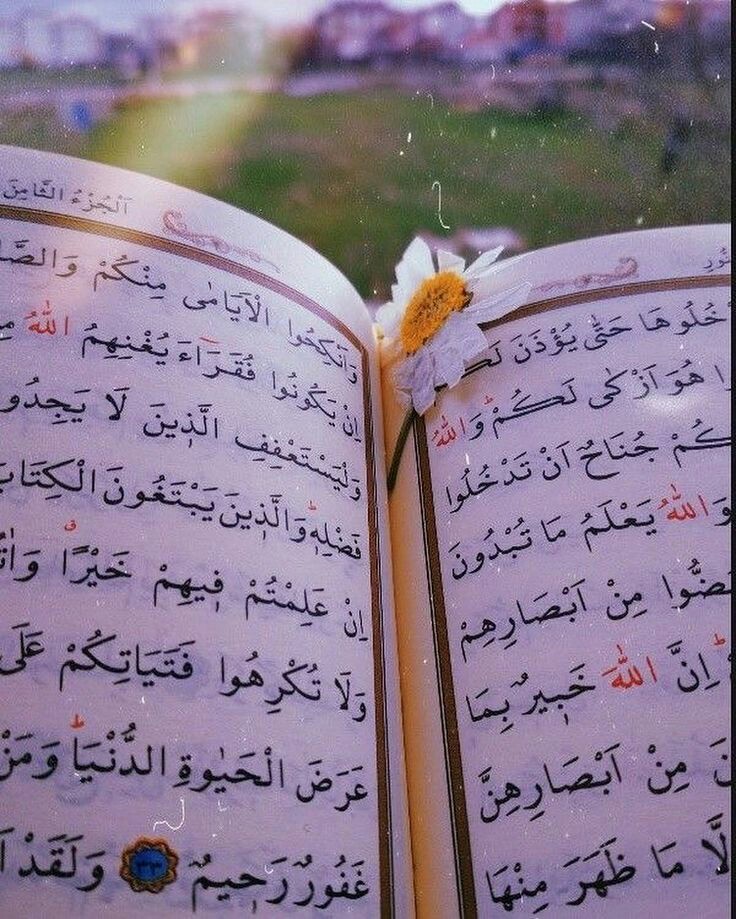 دْخُلُوهَا حَتّٰى يُؤْذَنَ
هُوَ اَزْكٰى لَكُمْۜ وَاللّٰهُ
كُمْ جُنَاحٌ اَنْ تَدْخُلُوا
وَاللّٰهُ يَعْلَمُ مَا تُبْدُونَ
ضُّوا مِنْ اَبْصَارِهِمْ
اِنَّ اللّٰهَ خَب۪يرٌ بِمَا
نَ مِنْ اَبْصَارِهِنَّ
لَّا مَا ظَهَرَ مِنْهَا
اَلْجُزْءُ الثَّامِنَ
وَاَنْكِحُوا الْاَيَامٰى مِنْكُمْ وَالصَّا
اِنْ يَكُونُوا فُقَرَٓاءَ يُغْنِهِمُ اللّٰهُ
وَلْيَسْتَعْفِفِ الَّذ۪ينَ لَا يَجِدُو
فَضْلِه۪ۜ وَالَّذ۪ينَ يَبْتَغُونَ الْكِتَابَ
اِنْ عَلِمْتُمْ ف۪يهِمْ خَيْرًاۗ وَاٰتُ
وَلَا تُكْرِهُوا فَتَيَاتِكُمْ عَلَى
عَرَضَ الْحَيٰوةِ الدُّنْيَاۜ وَمَنْ
غَفُورٌ رَح۪يمٌ ﴿٣٣﴾ وَلَقَدْ اَ